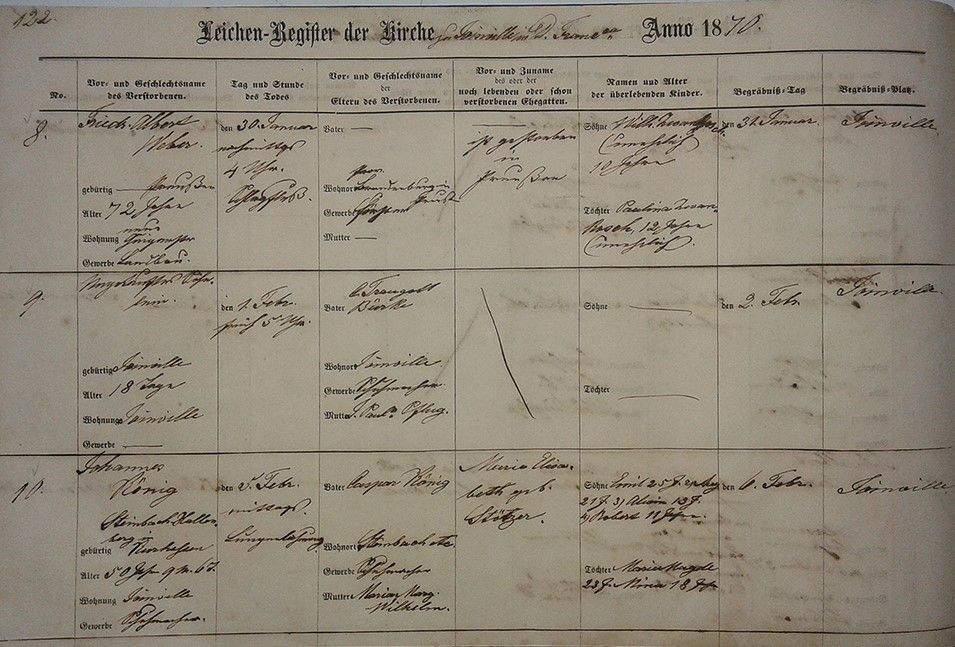 122.
Leichen-Register der Kirche zu Joinville in D. Francisca Anno 1870.
No.
Vor- und Geschlechtsname
des Verstorbenen.
Tag und Stunde
des Todes
Vor- und Geschlechtsname
der
Eltern des Verstorbenen.
Vor- und Zuname
des oder der
noch lebenden oder schon
verstorbenen Ehegatten.
Namen und Alter
der überlebenden Kinder.
Begräbniß-Tag
Begräbniß-Platz.
8.
Friedr. Albert
Weber.
gebürtig Preußen
Alter 72 Jahre
Wohnung neue
Gewerbe Landbau.
den 30. Januar
nachmittags
4 Uhr.
Schlagfluß.
Vater —
Wohnort Brandenburg in
Gewerbe
Mutter —
ist gestorben
in
Preußen
Söhne Wilh.
(unehelich)
Jahre
Töchter Paulina
12 Jahre
(unehelich).
den 31. Januar.
Joinville
9.
Ungetauftes Söhn-
lein.
gebürtig Joinville
Alter 18 Tage
Wohnung Joinville
Gewerbe —
den 1. Febr.
früh 5 Uhr.
Vater C. Traugott
Wohnort Joinville
Gewerbe Schuhmacher
Mutter Paul. Pflug.
Söhne —
Töchter —
den 2. Febr
Joinville
10.
Johannes
König
Steinbach Hallen-
berg in
gebürtig Kurhessen
Alter 50 Jahr 9 M. 6 T.
Wohnung Joinville
Gewerbe Schuhmacher.
den 5. Febr.
mittags.
Lungenlähmung
Vater Caspar König
Wohnort Steinbach etc.
Gewerbe Schuhmacher
Mutter Maria Marg.
Wilhelm.
Maria Elisa-
beth geb.
Stötzer.
Söhne Emil 25 J.
21 J. 3) 13 J.
4) Robert 11 Jahre.
Töchter Maria
23 J. 18 J.
den 6. Febr.
Joinville